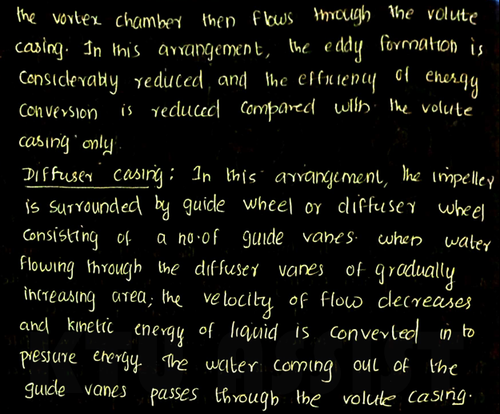 the vortex chamber then flows through the volute
casing. In this arrangement, the eddy formation is
considerably reduced and the efficiency of energy
conversion is reduced compared with the volute
casing only.
Diffuser casing: In this arrangement, the impeller
is surrounded by guide wheel or diffuser wheel
consisting of a no.of guide vanes. when water
flowing through the diffuser vanes of gradually
increasing area, the velocity of flow decreases
and kinetic energy of liquid is converted in to
pressure energy. The water coming out of the
guide vanes passes through the volute casing.